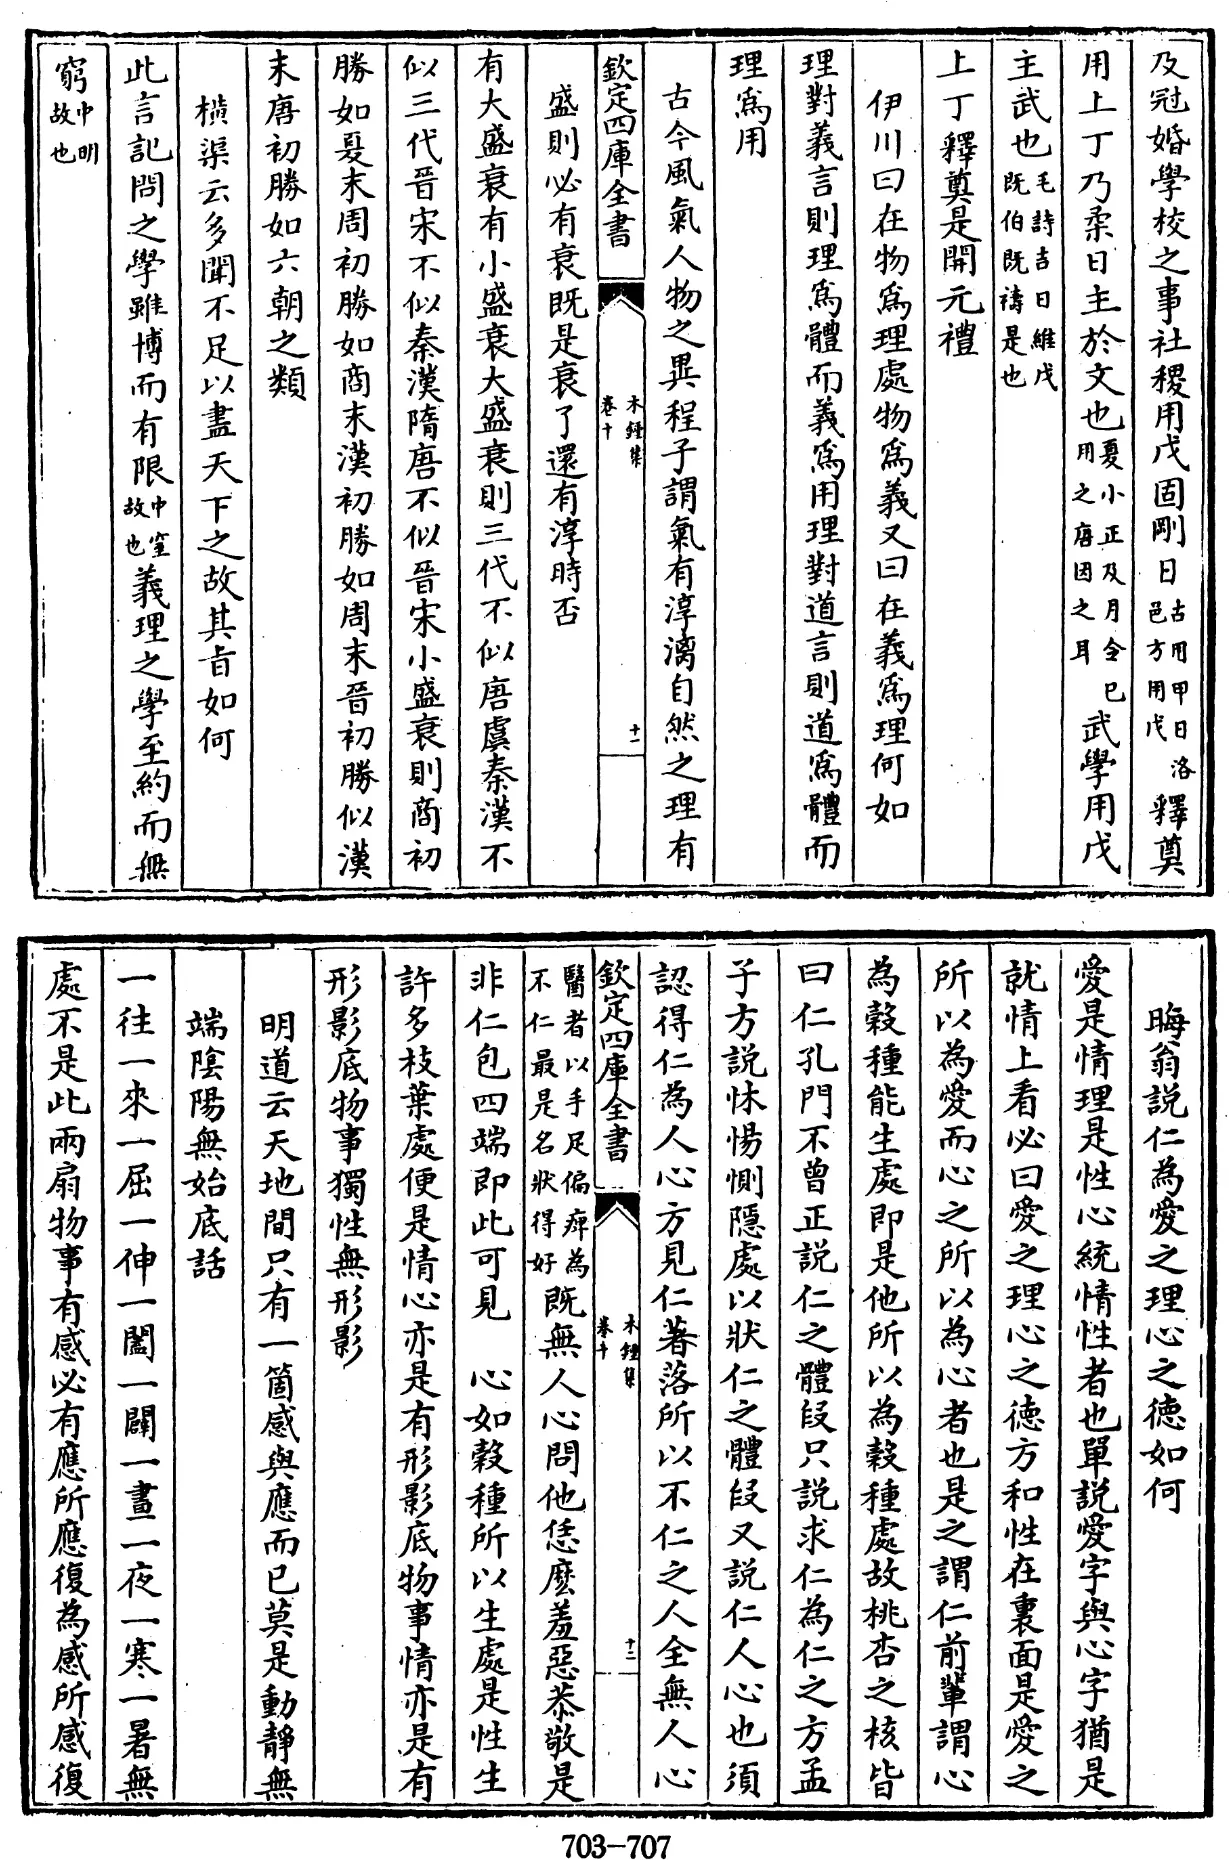 及冠婚學校之事社稷用戊固剛日古用甲日洛邑方用戊釋奠
用上丁乃柔日主於文也夏小正及月令已用之唐因之耳武學用戊
主武也毛詩吉日維戊既伯既禱是也
上丁釋奠是開元禮
伊川曰在物爲理處物爲義又曰在義爲理何如
理對義言則理爲體而義爲用理對道言則道爲體而
理爲用
古今風氣人物之異程子謂氣有淳漓自然之理有
欽定四庫全書
木鍾集
卷十
十一
盛則必有衰既是衰了還有淳時否
有大盛衰有小盛衰大盛衰則三代不似唐虞秦漢不
似三代晉宋不似秦漢隋唐不似晉宋小盛衰則商初
勝如夏末周初勝如商末漢初勝如周末晉初勝似漢
末唐初勝如六朝之類
橫渠云多聞不足以盡天下之故其旨如何
此言記問之學雖博而有限中窒故也義理之學至約而無
窮中明故也
晦翁説仁為愛之理心之徳如何
愛是情理是性心統情性者也單説愛字與心字猶是
就情上看必曰愛之理心之徳方和性在裏面是愛之
所以為愛而心之所以為心者也是之謂仁前輩謂心
為穀種能生處即是他所以為穀種處故桃杏之核皆
曰仁孔門不曾正説仁之體段只説求仁為仁之方孟
子方説怵惕惻隱處以狀仁之體段又説仁人心也須
認得仁為人心方見仁著落所以不仁之人全無人心
欽定四庫全書
木鍾集
卷十
十二
醫者以手足偏痺為不仁最是名狀得好既無人心問他恁麽羞惡恭敬是
非仁包四端即此可見 心如穀種所以生處是性生
許多枝葉處便是情心亦是有形影底物事情亦是有
形影底物事獨性無形影
明道云天地間只有一箇感與應而已莫是動靜無
端陰陽無始底話
一往一來一屈一伸一闔一闢一晝一夜一寒一暑無
處不是此兩扇物事有感必有應所應復為感所感復
703-707